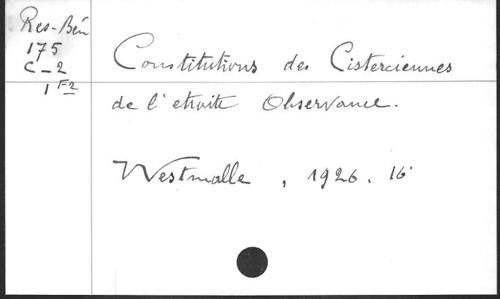 Res-Bén
175
C-2
1 F2
Constitutions des Cisterciennes
de l'etroite Observance.
Westmalle, 1926. 16°